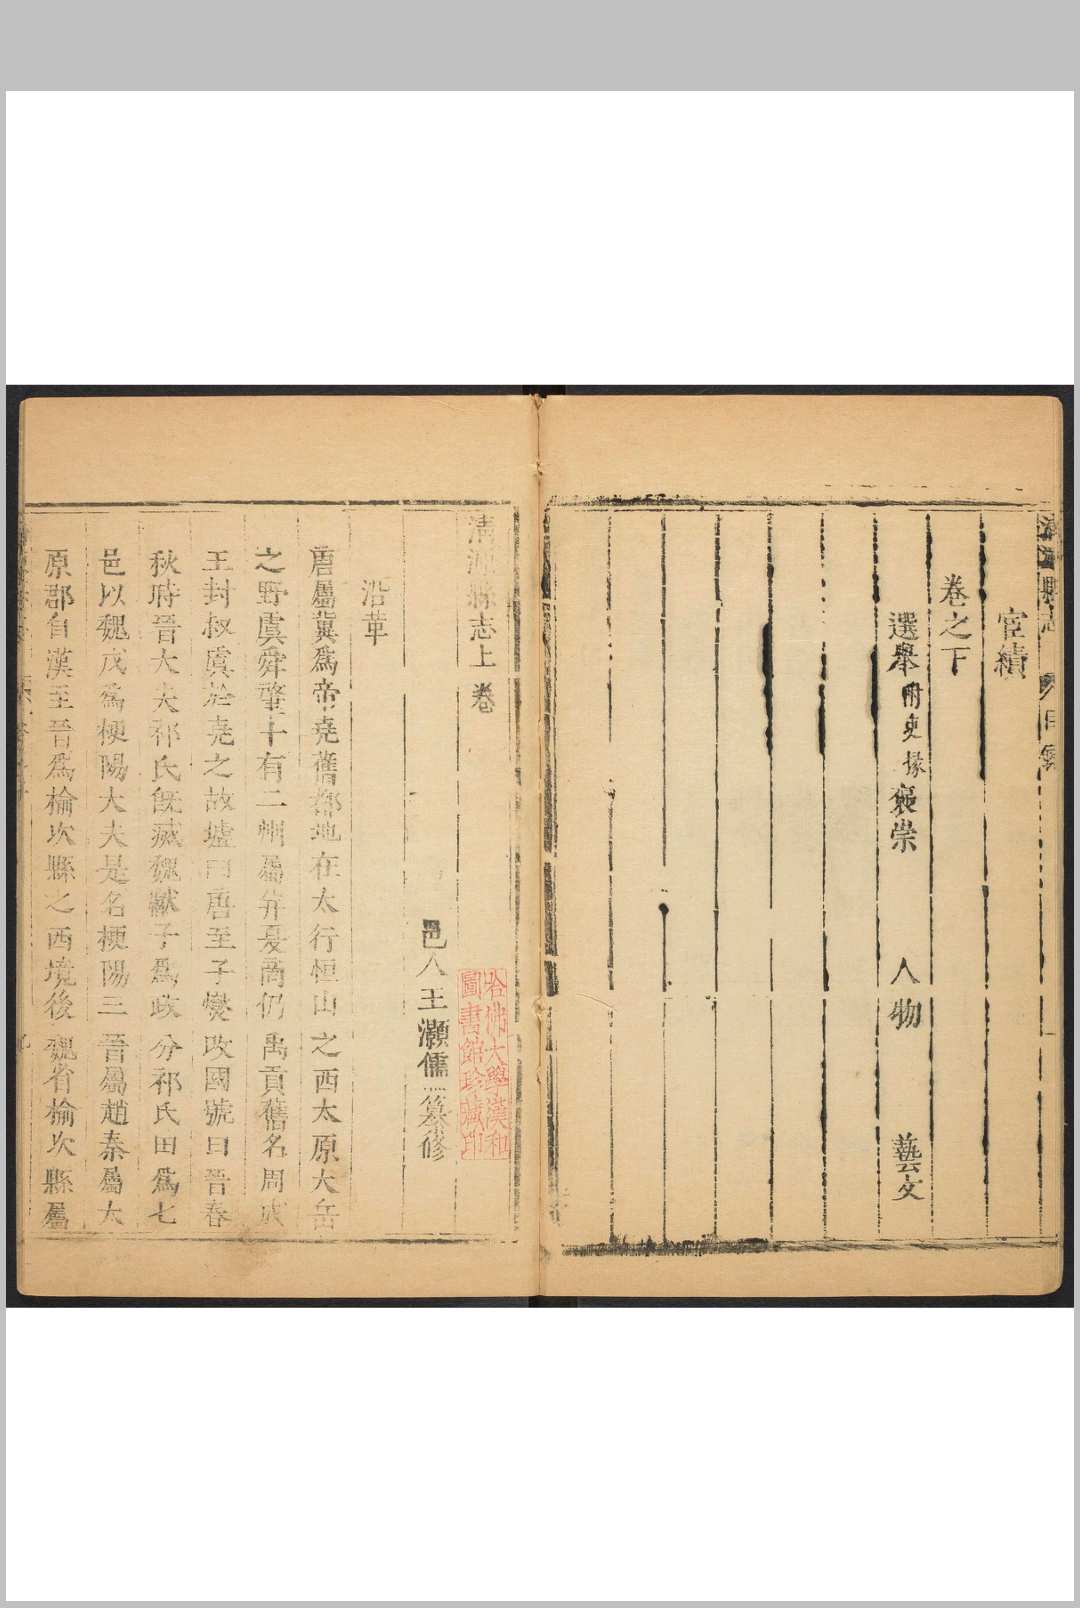 宦績
卷之下
選舉附吏掾褒崇 人物 藝文
清源縣志上卷
邑人王灝儒纂修
沿革
唐屬冀爲帝堯舊都地在太行恒山之西太原大岳
之野虞舜肇十有二州屬并夏商仍禹貢舊名周成
王封叔虞於堯之故墟曰唐至子燮改國號曰晉春
秋時晉大夫祁氏旣滅魏獻子爲政分祁氏田爲七
邑以魏戊爲梗陽大夫是名梗陽三晉屬趙秦屬太
原郡自漢至晉爲榆次縣之西境後魏省榆次縣屬
哈佛大學漢和
圖書館珍藏印